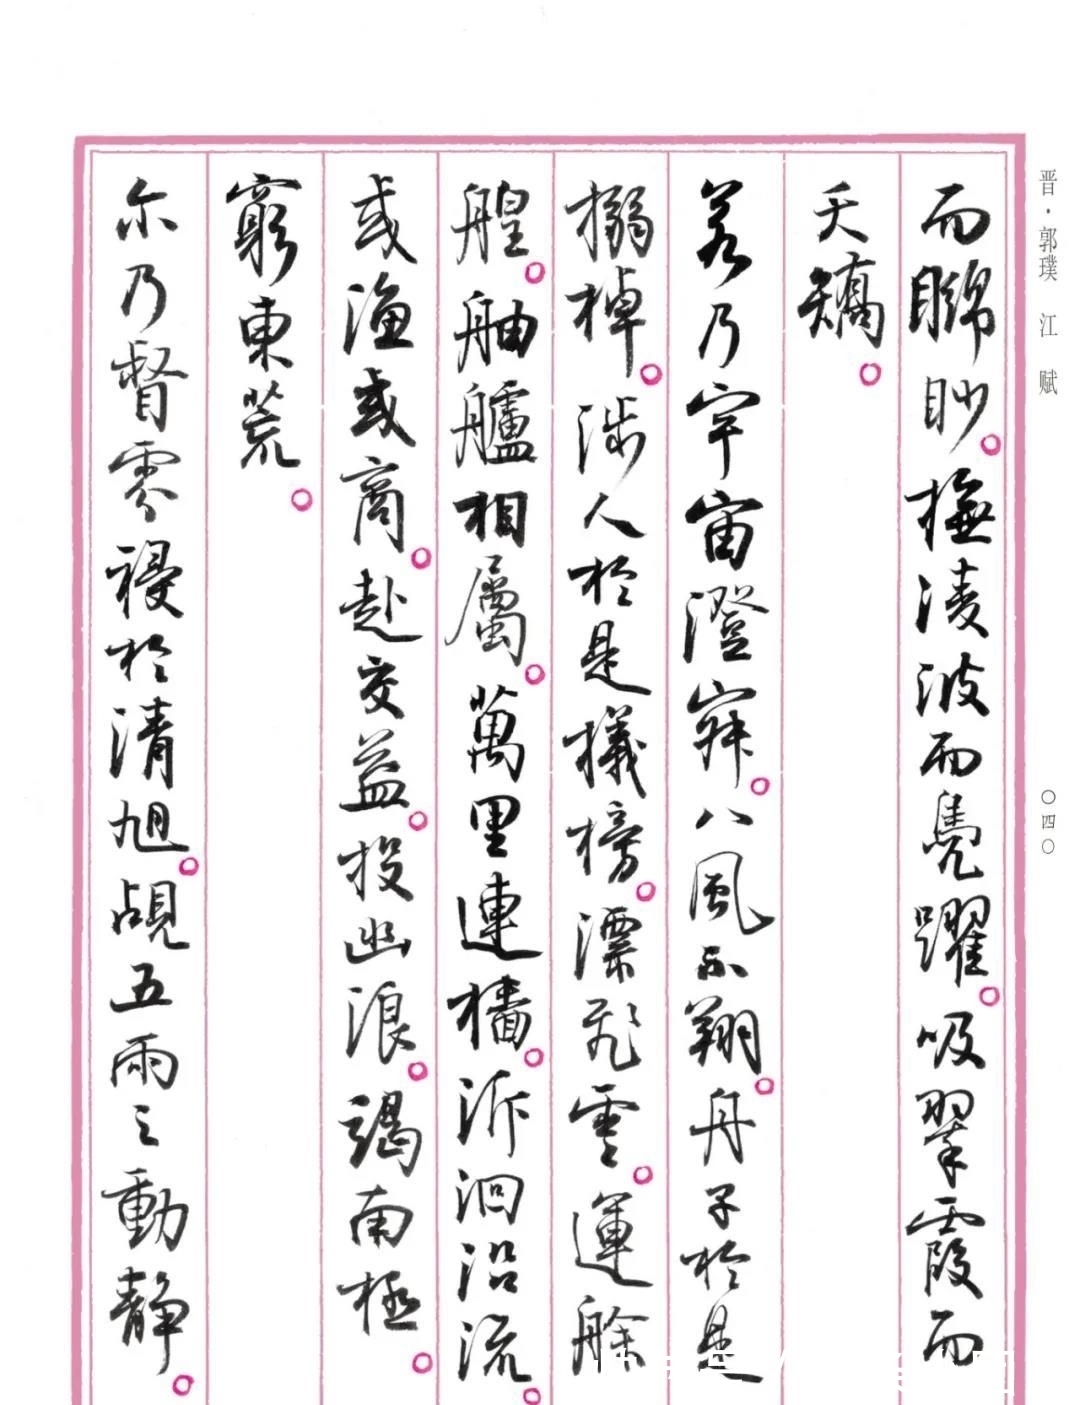 晋·郭璞 江 赋
〇四〇
而矊眇。撫淩波而鳧躍。吸翠霞而
夭矯。
若乃宇宙澄寂。八風不翔。舟子於是
搦棹。涉人於是檥榜。漂飛雲。運艅
艎。舳艫相屬。萬里連檣。泝洄沿流。
或漁或商。赴交益。投幽浪。竭南極。
窮東荒。
尔乃督雰祲於清旭。覘五雨之動靜。